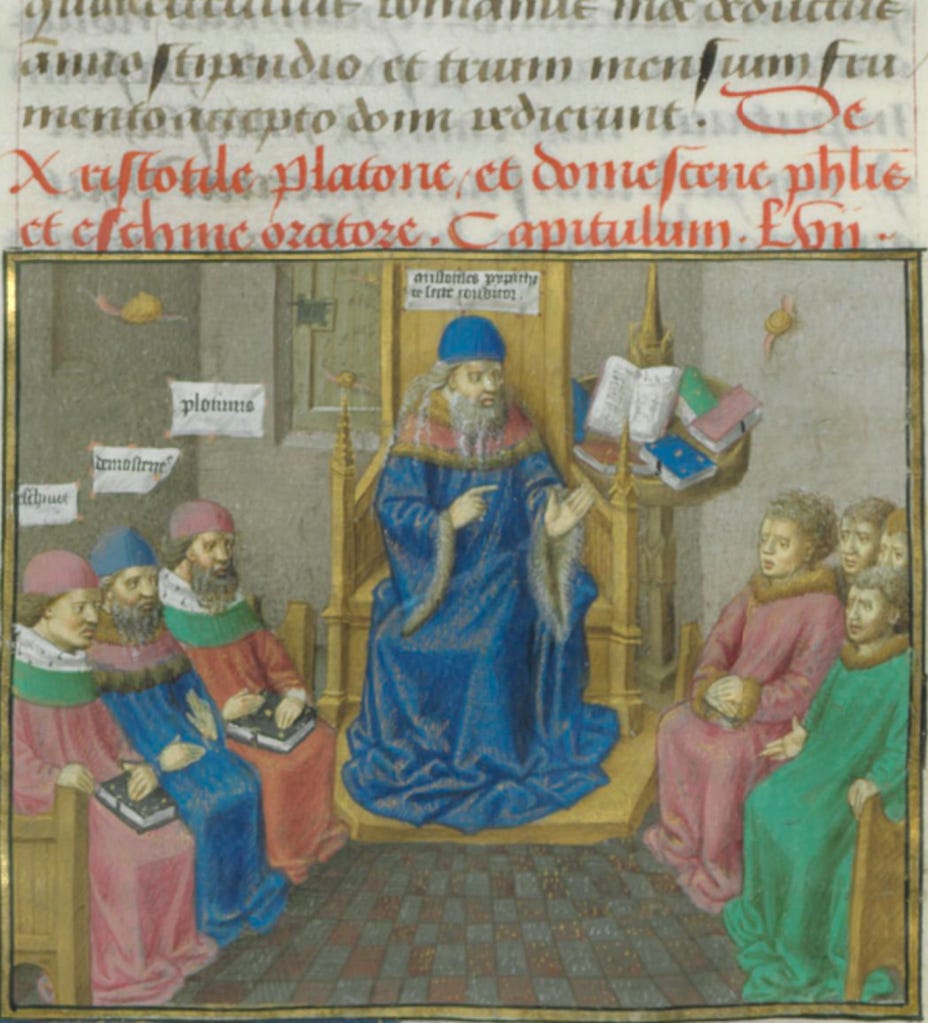 anno stipendio et trium mensium fru
mento accepto domi redierunt. De
Aristotile Platone, et domestene phl̄is
et eschine oratore. Capitulum. Lvii.
aristotiles
te secte conditor.
plotinus
demostenes
eschines